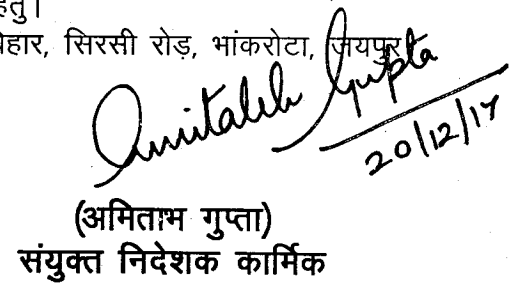 हेतु।
वेहार, सिरसी रोड़, भांकरोटा, जयपुर
Amitabh Gupta
20/12/17
(अमिताभ गुप्ता)
संयुक्त निदेशक कार्मिक